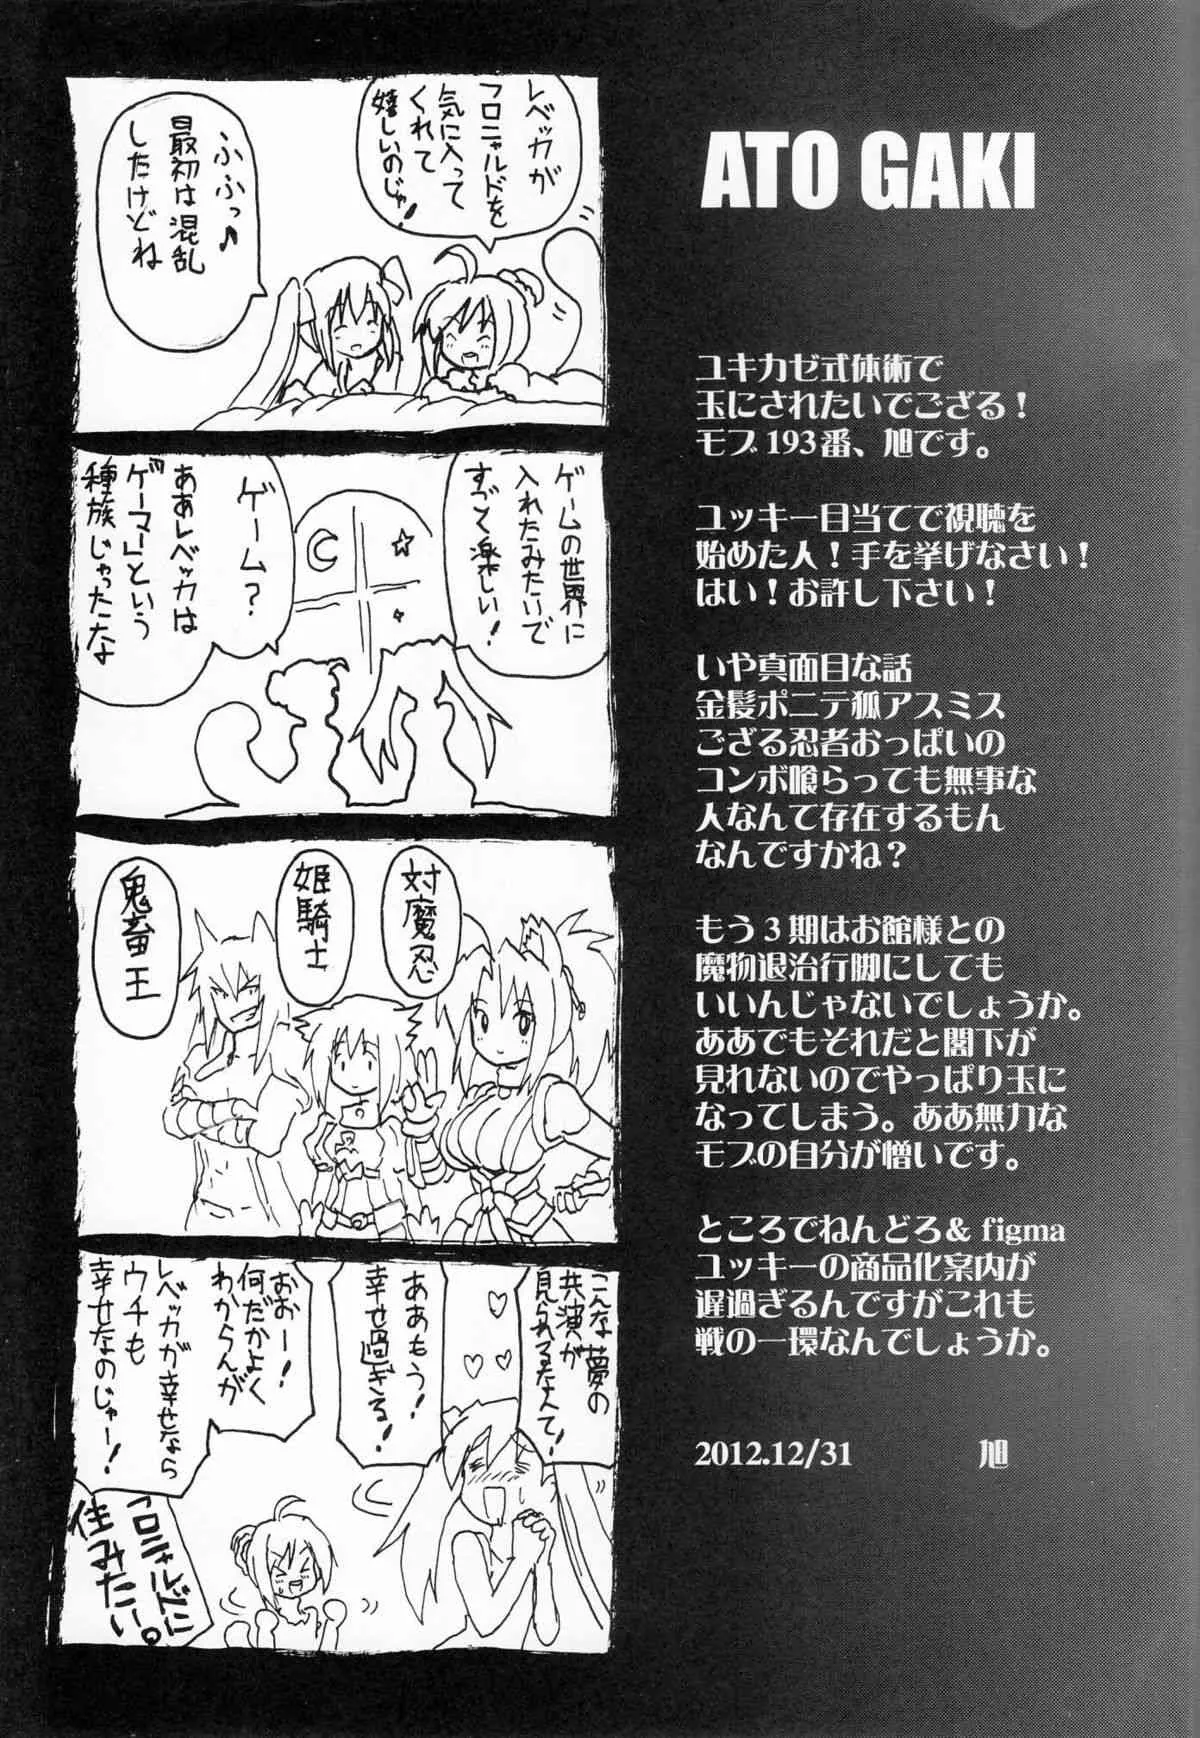 ATO GAKI
ユキカゼ式体術で
玉にされたいでござる！
モブ193番、旭です。
ユッキー目当てで視聴を
始めた人！手を挙げなさい！
はい！お許し下さい！
いや真面目な話
金髪ポニテ狐アスミス
ござる忍者おっぱいの
コンボ喰らっても無事な
人なんて存在するもん
なんですかね？
もう3期はお館様との
魔物退治行脚にしても
いいんじゃないでしょうか。
ああでもそれだと閣下が
見れないのでやっぱり玉に
なってしまう。ああ無力な
モブの自分が憎いです。
ところでねんどろ& figma
ユッキーの商品化案内が
遅過ぎるんですがこれも
戦の一環なんでしょうか。
2012.12/31 旭
レベッカが
フロニャルドを
気に入って
くれて
嬉しいのじゃ！
ふふっ♪
最初は混乱
したけどね
ゲームの世界に
入れたみたいで
すごく楽しい！
ゲーム？
ああレベッカは
「ゲーマー」という
種族じゃったな
対魔忍
姫騎士
鬼畜王
こんな夢の
共演が
見られるなんて！
ああもう！
幸せ過ぎる！
おおー！
何だかよく
わからんが
レベッカが幸せなら
ウチも
幸せなのじゃー！
フロニャルドに
住みたい。